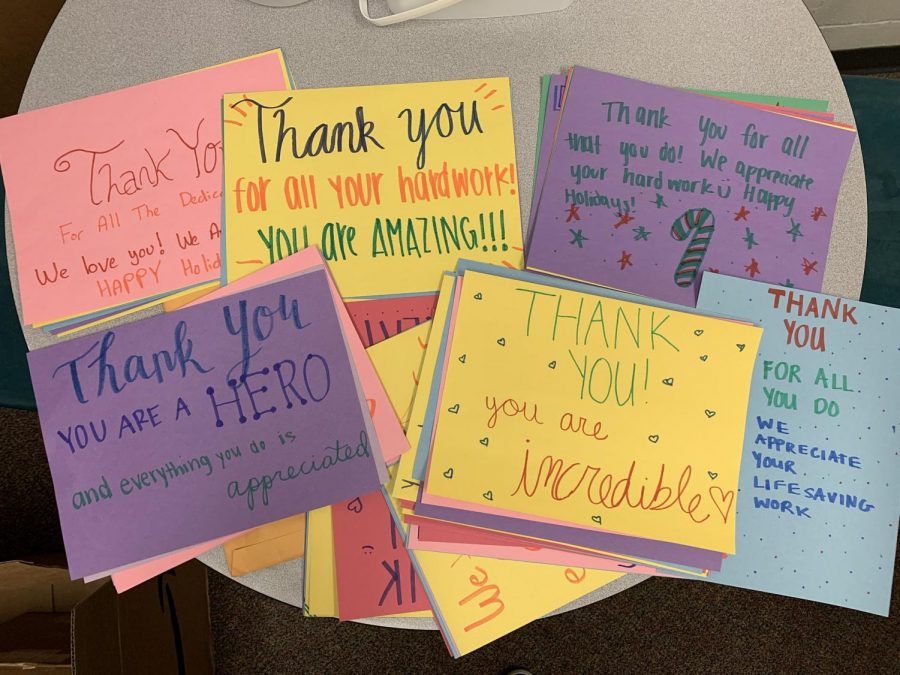 Thank
For All The
We love you! We
HAPPY
Thank you
for all your hardwork!
you are AMAZING!!!
Thank you for all
that you do! We appreciate
your hardwork Ü Happy
Holidays!
Thank You
YOU ARE A HERO
and everything you do is
appreciated
THANK
YOU!
you are
incredible
THANK
YOU
FOR ALL
YOU DO
WE
APPRECIATE
YOUR
LIFESAVING
WORK
We